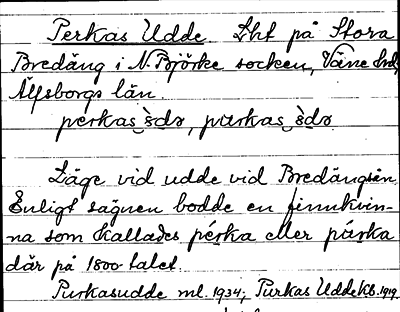 Perkas Udde. Lht på Stora
Bredäng i N. Björke socken, Väne hd,
Älfsborgs län.
perkas ədə, purkas ədə
Läge vid udde vid Bredängsån.
Enligt sägnen bodde en finnkvin-
na som kallades pérka eller púrka
där på 1800-talet.
Purkasudde ml. 1934; Purkas Udde kb. 1919